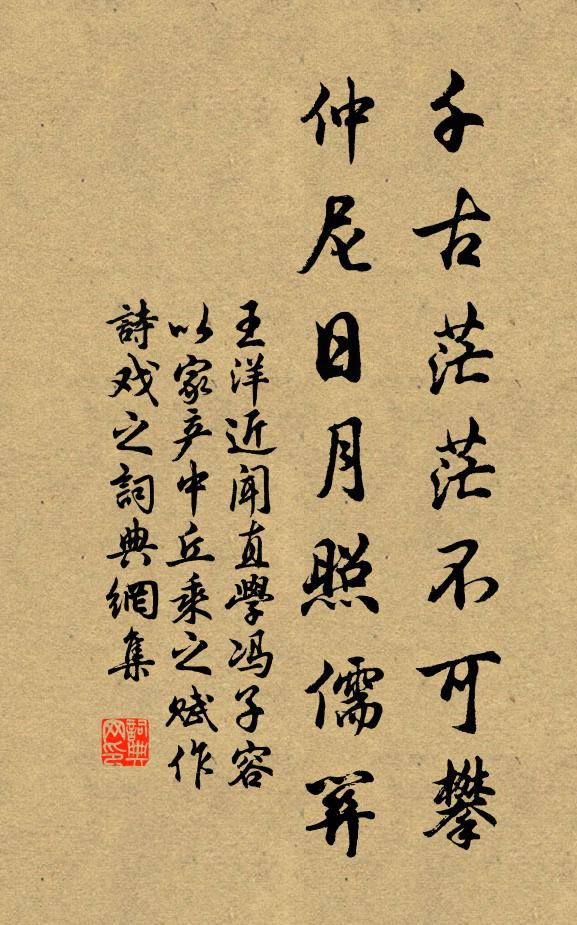 千古茫茫不可攀
仲尼日月照儒
王洋近聞直學冯子容
以家产中丘乘之赋作
詩戏之詞典網集
詞典
网印